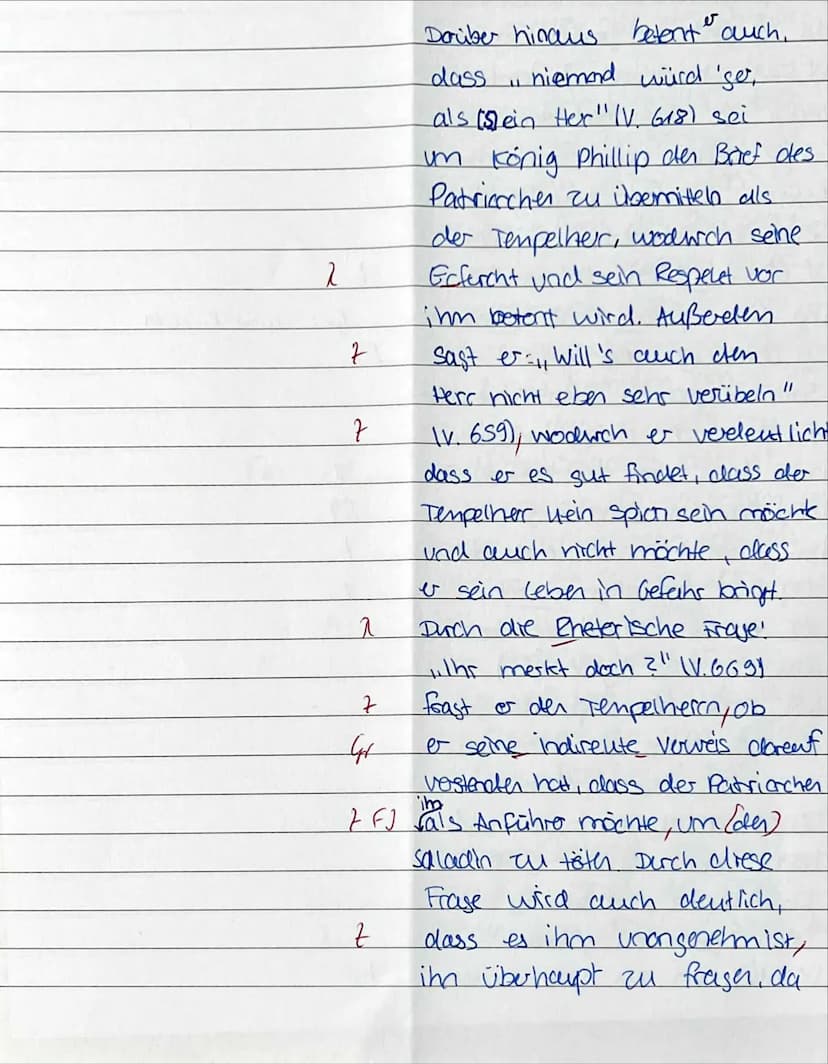 Darüber hinaus betont er auch,
dass „niemand würd'ger,
als [s]ein Herr" (V. 618) sei
um König Phillip den Brief des
Patriarchen zu übermitteln als
der Tempelherr, wodurch seine
R Erfurcht und sein Respekt vor
ihm betont wird. Außerdem
Z sagt er: „Will's auch den
Herr nicht eben sehr verübeln"
Z (V. 659), wodurch er verdeutlicht
dass er es gut findet, dass der
Tempelherr kein Spion sein möchte
und auch nicht möchte, dass
er sein Leben in Gefahr bringt.
R Durch die Rhetorische Frage:
„Ihr merkt doch?" (V. 669)
Z fragt er den Tempelherrn, ob
Gr er seine indirekte Verweis darauf
verstanden hat, dass der Patriarchen
Z [F] ihn als Anführer möchte, um (den)
Saladin zu töten. Durch diese
Frage wird auch deutlich,
Z dass es ihm unangenehm ist,
ihn überhaupt zu fragen, da